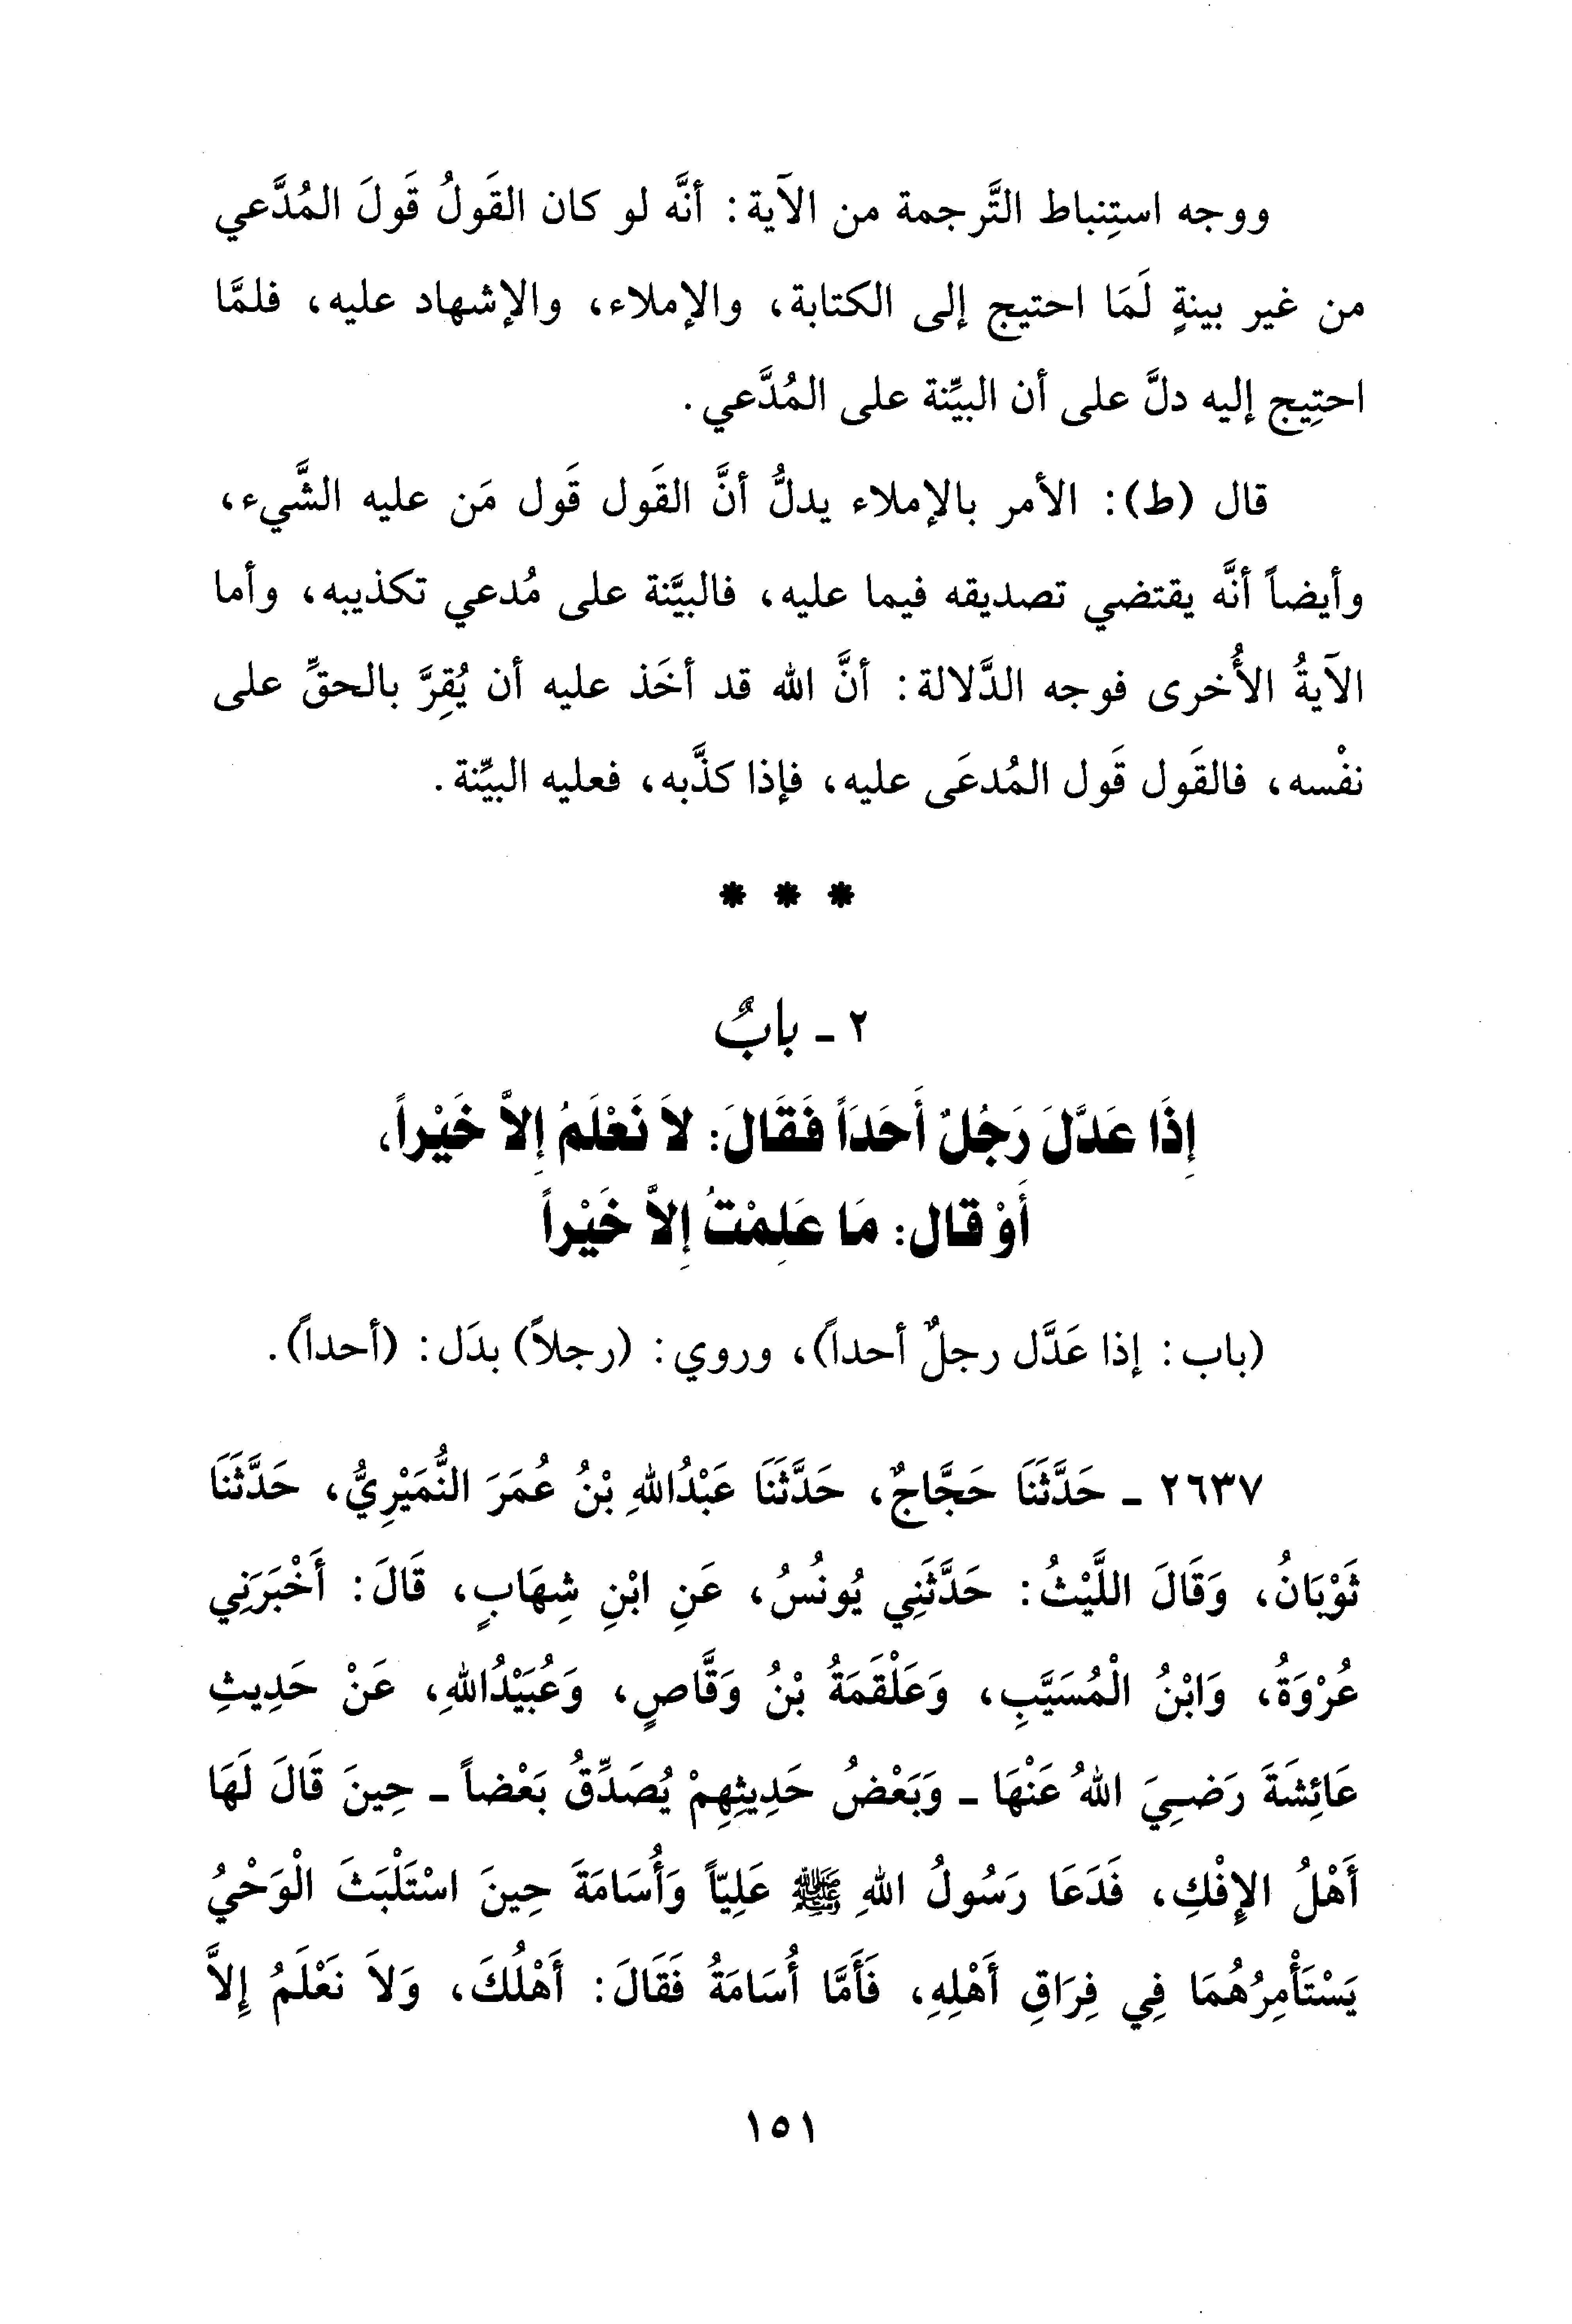 ووجه استِنباط التَّرجمة من الآية: أنَّه لو كان القَولُ قَولَ المُدَّعي
من غير بينةٍ لَمَا احتيج إلى الكتابة، والإملاء، والإشهاد عليه، فلمَّا
احتِيج إليه دلَّ على أن البيِّنة على المُدَّعي.
قال (ط): الأمر بالإملاء يدلُّ أنَّ القَول قَول مَن عليه الشَّيء،
وأيضاً أنَّه يقتضي تصديقه فيما عليه، فالبيَّنة على مُدعي تكذيبه، وأما
الآيةُ الأُخرى فوجه الدَّلالة: أنَّ الله قد أخَذ عليه أن يُقِرَّ بالحقِّ على
نفْسه، فالقَول قَول المُدعَى عليه، فإذا كذَّبه، فعليه البيِّنة.
* * *
٢ - بابٌ
إِذَا عَدَّلَ رَجُلٌ أَحَدَاً فَقَالَ: لاَ نَعْلَمُ إِلاَّ خَيْراً،
أَوْ قال: مَا عَلِمْتُ إِلاَّ خَيْراً
(باب: إذا عَدَّل رجلٌ أحداً)، وروي: (رجلاً) بدَل: (أحداً).
٢٦٣٧ - حَدَّثَنَا حَجَّاجٌ، حَدَّثَنَا عَبْدُاللهِ بْنُ عُمَرَ النُّمَيْرِيُّ، حَدَّثَنَا
ثَوْبَانُ، وَقَالَ اللَّيْثُ: حَدَّثَنِي يُونُسُ، عَنِ ابْنِ شِهَابٍ، قَالَ: أَخْبَرَنِي
عُرْوَةُ، وَابْنُ الْمُسَيَّبِ، وَعَلْقَمَةُ بْنُ وَقَّاصٍ، وَعُبَيْدُاللهِ، عَنْ حَدِيثِ
عَائِشَةَ رَضِيَ اللهُ عَنْهَا - وَبَعْضُ حَدِيثِهِمْ يُصَدِّقُ بَعْضاً - حِينَ قَالَ لَهَا
أَهْلُ الإِفْكِ، فَدَعَا رَسُولُ اللهِ ﷺ عَلِيّاً وَأُسَامَةَ حِينَ اسْتَلْبَثَ الْوَحْيُ
يَسْتَأْمِرُهُمَا فِي فِرَاقِ أَهْلِهِ، فَأَمَّا أُسَامَةُ فَقَالَ: أَهْلُكَ، وَلاَ نَعْلَمُ إِلاَّ
١٥١